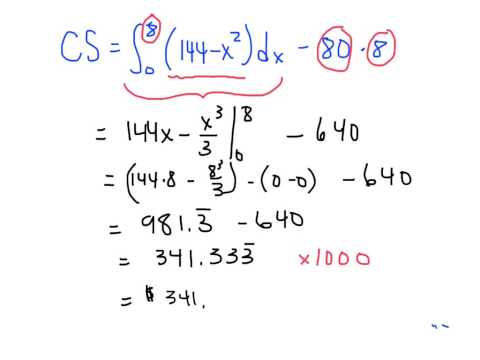 CS = ∫₀⁸ (144 - x²) dx - 80 · 8
= 144x - x³/3 |₀⁸ - 640
= (144·8 - 8³/3) - (0 - 0) - 640
= 981.3̅ - 640
= 341.333̅ ×1000
= $ 341.